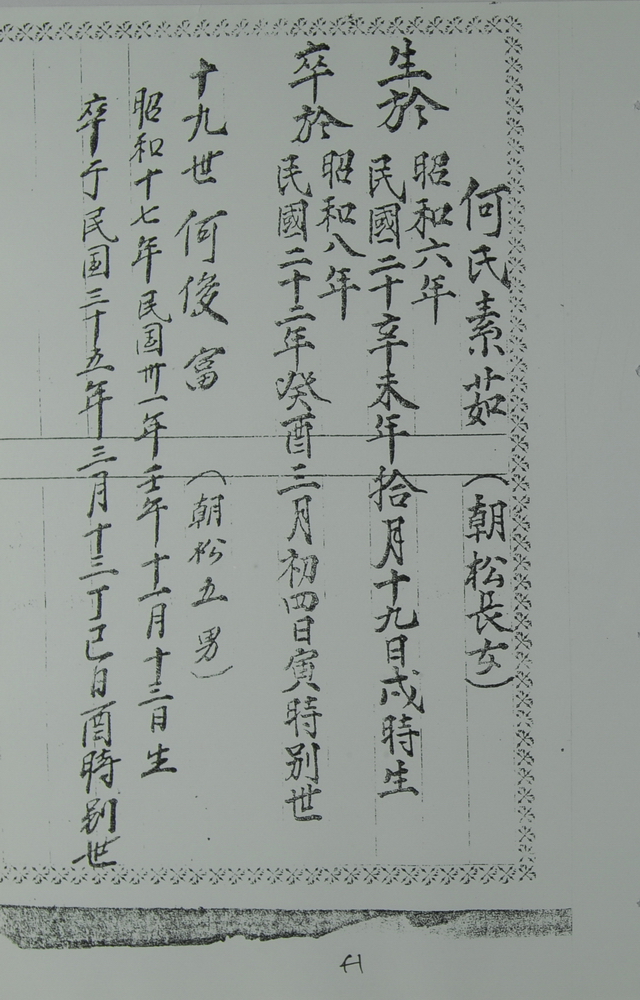 何民素茹（朝松長女）
生於昭和六年
民國二十辛未年拾月十九日戌時生
卒於昭和八年
民國二十二年癸酉三月初四日寅時別世
十九世何俊富（朝松五男）
昭和十七年民国卅一年壬午十一月十三日生
卒于民国三十五年三月十三丁巳日酉時別世